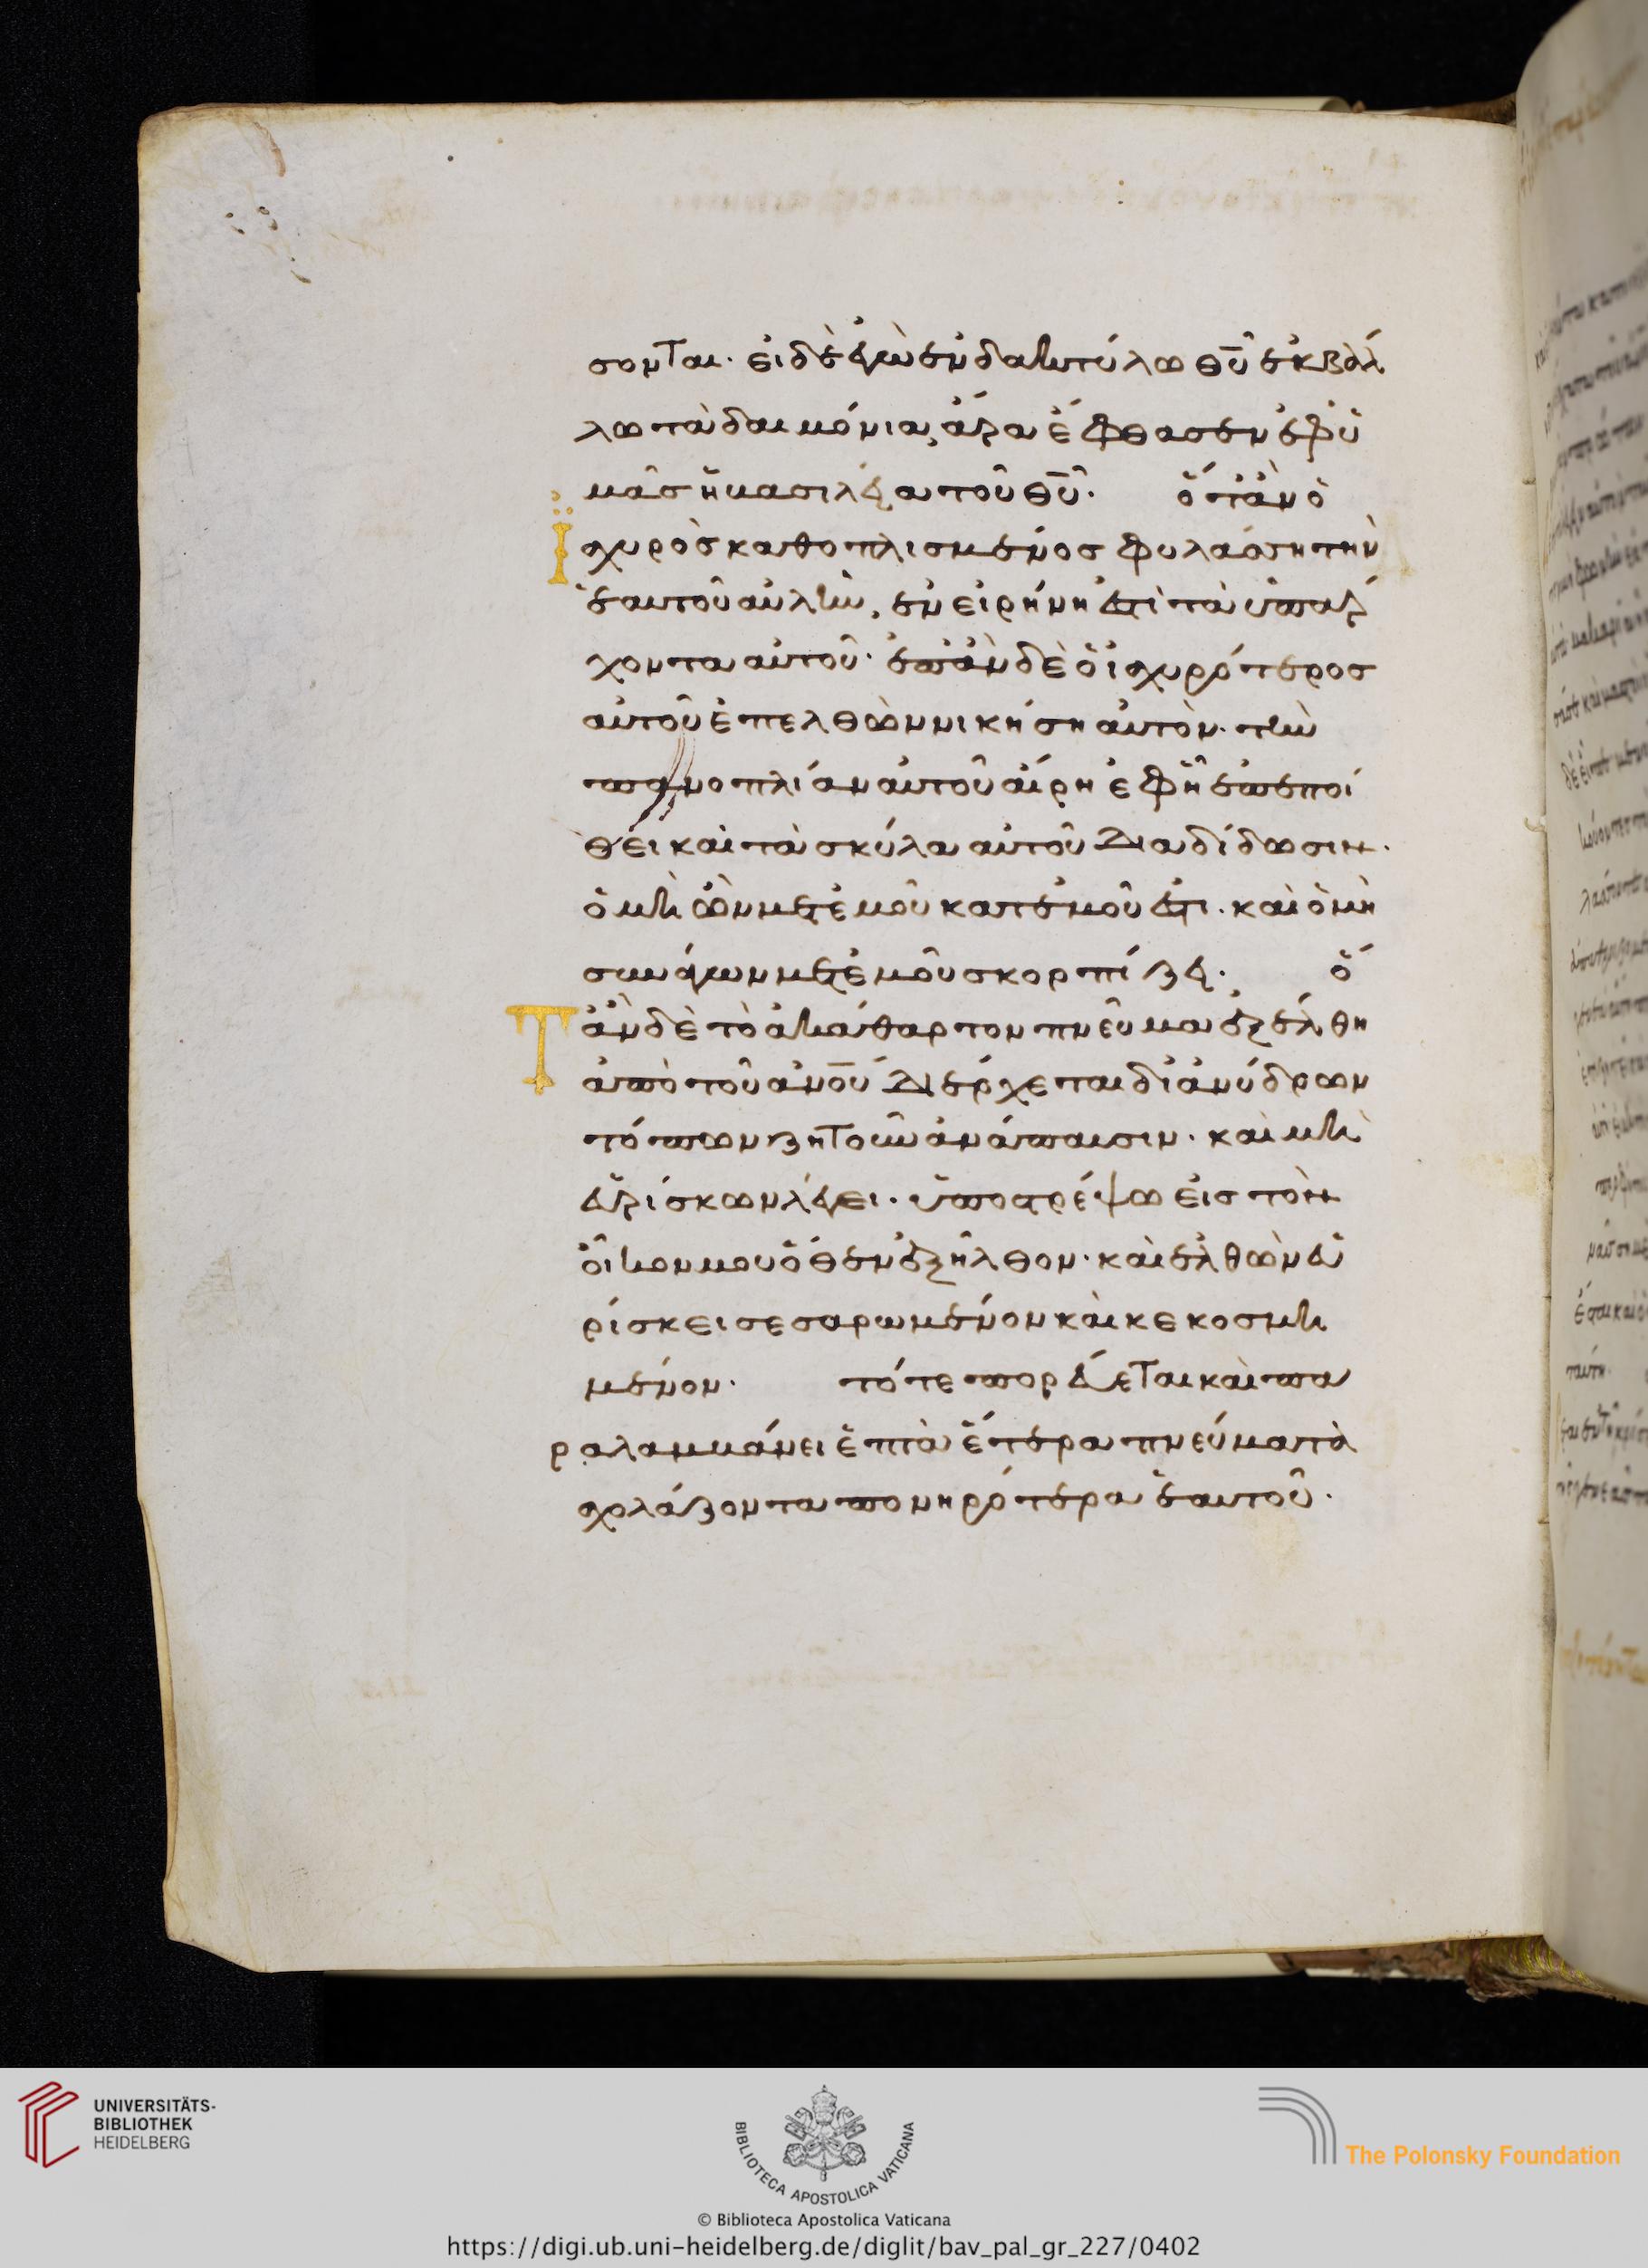 σονται· εἰ δὲ ἐγὼ ἐν δακτύλω θ̅υ̅ ἐκβάλ
λω τὰ δαιμόνια, ἄρα ἔφθασεν ἐφ ὑ
μᾶς ἡ βασιλεία τοῦ θ̅υ̅· ὅταν ὁ
ἰσχυρὸς καθοπλισμένος φυλάσση τὴν
ἑαυτοῦ αὐλὴν, ἐν εἰρήνη ἐστὶ τὰ ὑπάρ
χοντα αὐτοῦ· ἐπὰν δὲ ὁ ἰσχυρότερος
αὐτοῦ ἐπελθὼν νικήση αὐτὸν· τὴν
πανοπλίαν αὐτοῦ αἴρη ἐφ ἧ ἐπεποί
θει καὶ τὰ σκύλα αὐτοῦ διαδίδωσιν·
ὁ μὴ ὢν μετ ἐμοῦ κατ ἐμοῦ ἐστι· καὶ ὁ μὴ
συνάγων μετ ἐμοῦ σκορπίζει· ὅ
Τὰν δὲ τὸ ἀκάθαρτον πνεῦμα ἐξέλθη
ἀπὸ τοῦ ἀν̅ο̅υ̅ διέρχεται δι ἀνύδρων
τόπων ζητοῦν ἀνάπαυσιν· καὶ μὴ
εὑρίσκων λέγει· ὑποστρέψω εἰς τὸν
οἶκον μου ὅθεν ἐξῆλθον· καὶ ἐλθὼν εὑ
ρίσκει σεσαρωμένον καὶ κεκοσμη
μένον· τότε πορεύεται καὶ πα
ραλαμβάνει ἑπτὰ ἕτερα πνεύματα
σχολάζοντα πονηρότερα ἑαυτοῦ·
UNIVERSITÄTS-
BIBLIOTHEK
HEIDELBERG
BIBLIOTECA APOSTOLICA VATICANA
The Polonsky Foundation
© Biblioteca Apostolica Vaticana
https://digi.ub.uni-heidelberg.de/diglit/bav_pal_gr_227/0402